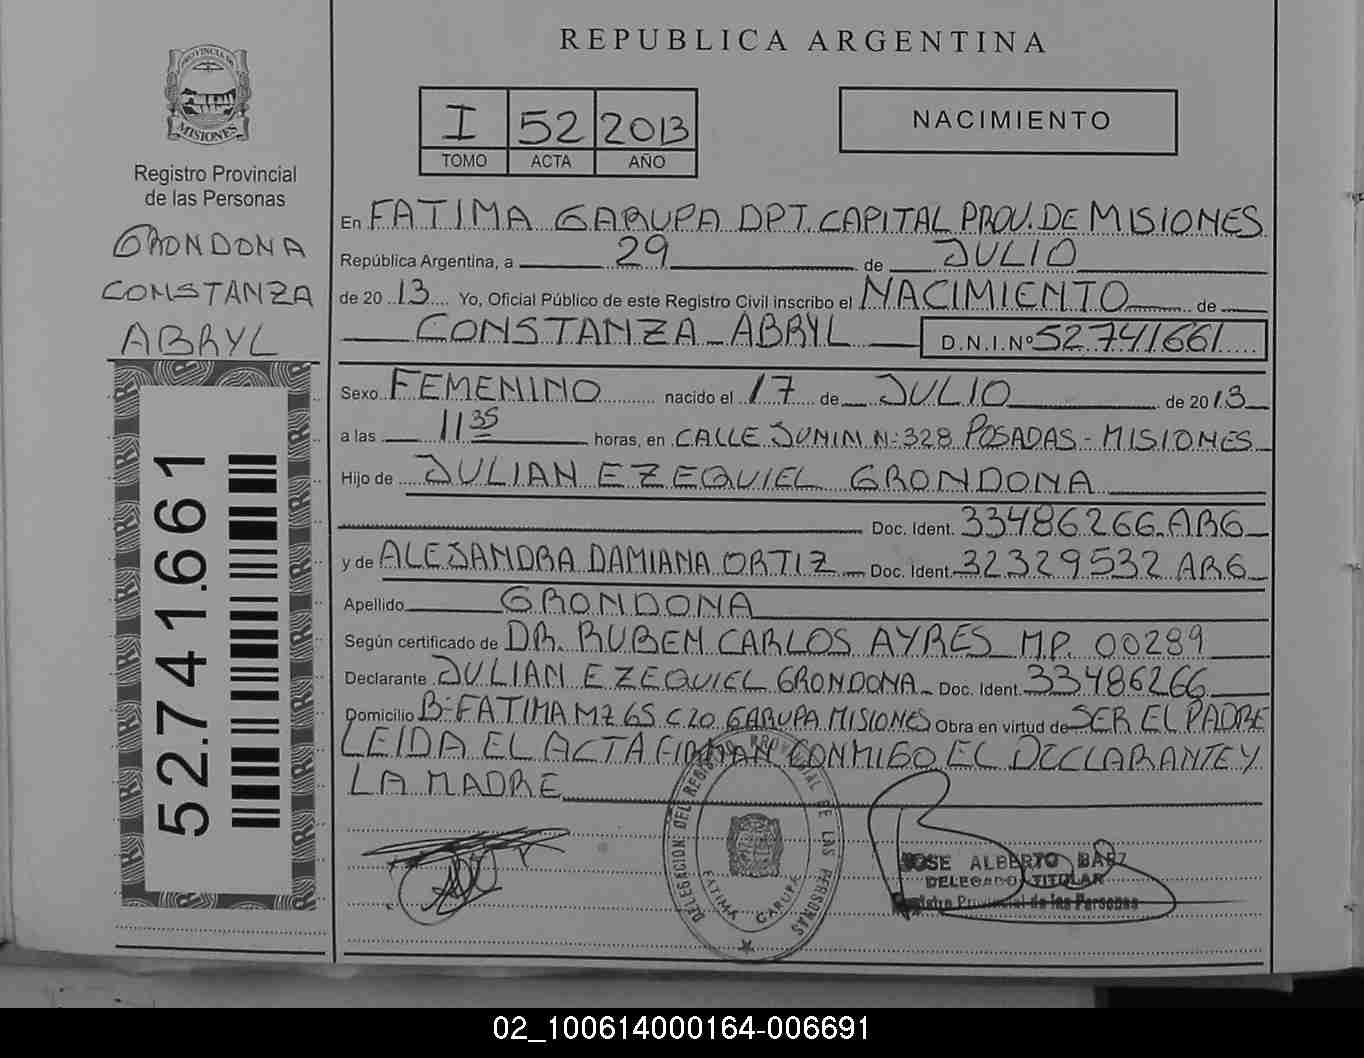 REPUBLICA ARGENTINA
PROVINCIA DE
MISIONES
Registro Provincial
de las Personas
GRONDONA
CONSTANZA
ABRYL
52.741.661
I 52 2013
TOMO ACTA AÑO
NACIMIENTO
En FATIMA GARUPA DPT. CAPITAL PROV. DE MISIONES
República Argentina, a 29 de JULIO
de 20 13 Yo, Oficial Público de este Registro Civil inscribo el NACIMIENTO de
CONSTANZA ABRYL D.N.I.Nº 52.741661
Sexo FEMENINO nacido el 17 de JULIO de 20 13
a las 11 35 horas, en CALLE JUNIN N: 328 POSADAS - MISIONES
Hijo de JULIAN EZEQUIEL GRONDONA
Doc. Ident. 33486266 ARG
y de ALEJANDRA DAMIANA ORTIZ Doc. Ident. 32329532 ARG
Apellido GRONDONA
Según certificado de DR. RUBEN CARLOS AYRES M.P. 00289
Declarante JULIAN EZEQUIEL GRONDONA Doc. Ident. 33486266
Domicilio B: FATIMA MZ 65 C.20 GARUPA MISIONES Obra en virtud de SER EL PADRE
LEIDA EL ACTA FIRMAN CONMIGO EL DECLARANTE Y
LA MADRE
DELEGACION DEL REGISTRO PROVINCIAL DE LAS PERSONAS
FATIMA GARUPA
JOSE ALBERTO BAEZ
DELEGADO TITULAR
Registro Provincial de las Personas
02_100614000164-006691